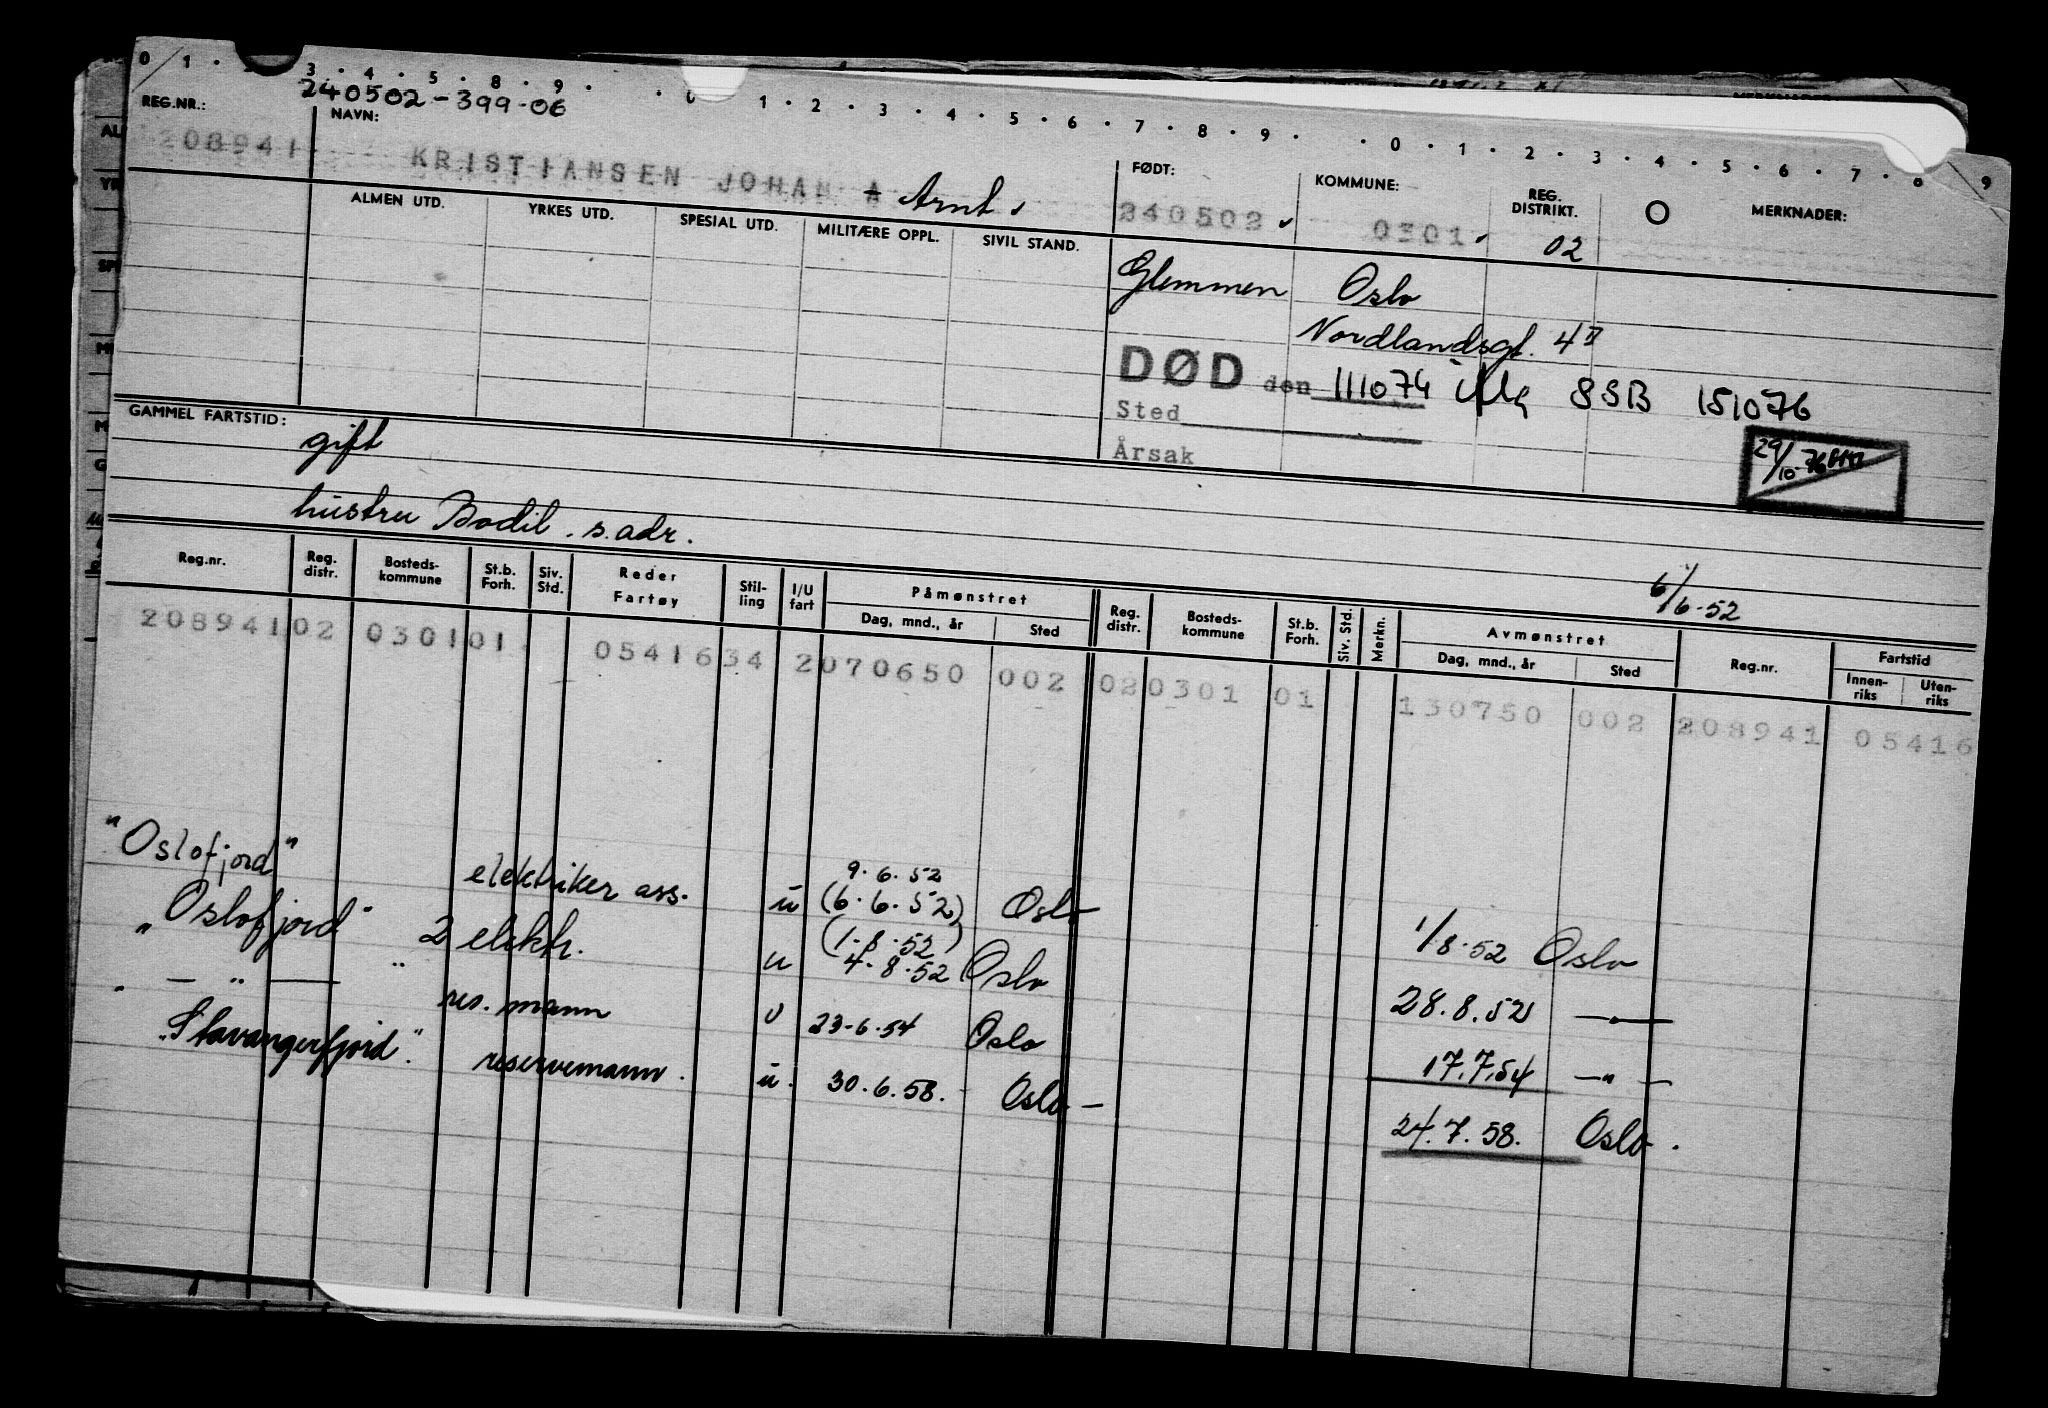 0 1 · 3 · 4 · 5 · 8 · 9 · · 0 · 1 · 2 · 3 · 4 · 5 · 6 · 7 · 8 · 9 · · 0 · 1 · 2 · 3 · 4 · 5 · 6 · 7 · 8 · 9
240502-399-06
REG.NR.: NAVN: FØDT: KOMMUNE: REG. DISTRIKT. O MERKNADER:
208941 KRISTIANSEN JOHAN A Arnt 240502 0301 02
ALMEN UTD. YRKES UTD. SPESIAL UTD. MILITÆRE OPPL. SIVIL STAND.
Glemmen Oslo
Nordlandsgt. 4 II
DØD den 111074 SSB 151076
Sted
Årsak
29/10-76
GAMMEL FARTSTID:
gift
hustru Bodil. s. adr.
6/6-52
Reg.nr. Reg. distr. Bosteds-kommune St.b. Forh. Siv. Std. Reder Fartøy Stil-ling I/U fart Påmønstret Dag, mnd., år Sted Reg. distr. Bosteds-kommune St.b. Forh. Siv. Std. Merkn. Avmønstret Dag, mnd., år Sted Reg.nr. Fartstid Innen-riks Uten-riks
208941 02 0301 01 05416 34 2 070650 002 02 0301 01 130750 002 208941 05416
"Oslofjord" elektriker ass. u 9.6.52 (6.6.52) Oslo 1/8.52 Oslo
"Oslofjord" 2 elektr. u (1.8.52) 4-8.52 Oslo 28.8.52 — " —
" — " — " res. mann u 23-6.54 Oslo 17.7.54 — " —
"Stavangerfjord". reservemann. u. 30.6.58. - Oslo - 24.7.58. Oslo.